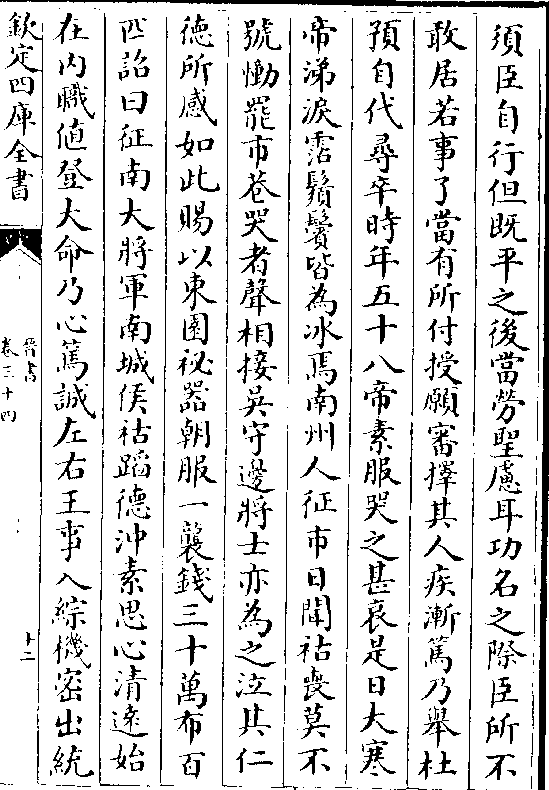 須臣自行但既平之後當勞聖慮耳功名之際臣所不
敢居若事了當有所付授願審擇其人疾漸篤乃舉杜
預自代尋卒時年五十八帝素服哭之甚哀是日大寒
帝涕淚霑鬚鬢皆為冰焉南州人征市日聞祜喪莫不
號慟罷市巷哭者聲相接吳守邊將士亦為之泣其仁
德所感如此賜以東園祕器朝服一襲錢三十萬布百
匹詔曰征南大將軍南城侯祜蹈德沖素思心清遠始
在内職值登大命乃心篤誠左右王事入綜機密出統
欽定四庫全書
晉書
卷三十四
十二